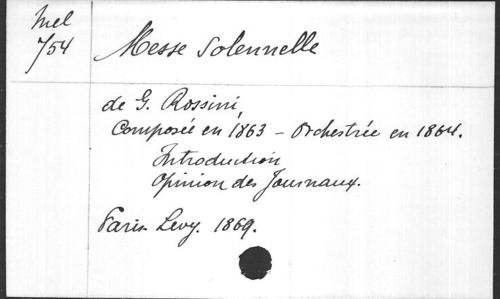 Mel
754
Messe Solennelle
de G. Rossini,
Composée en 1863 - Orchestrée en 1864.
Introduction
Opinion des Journaux.
Paris. Levy. 1869.